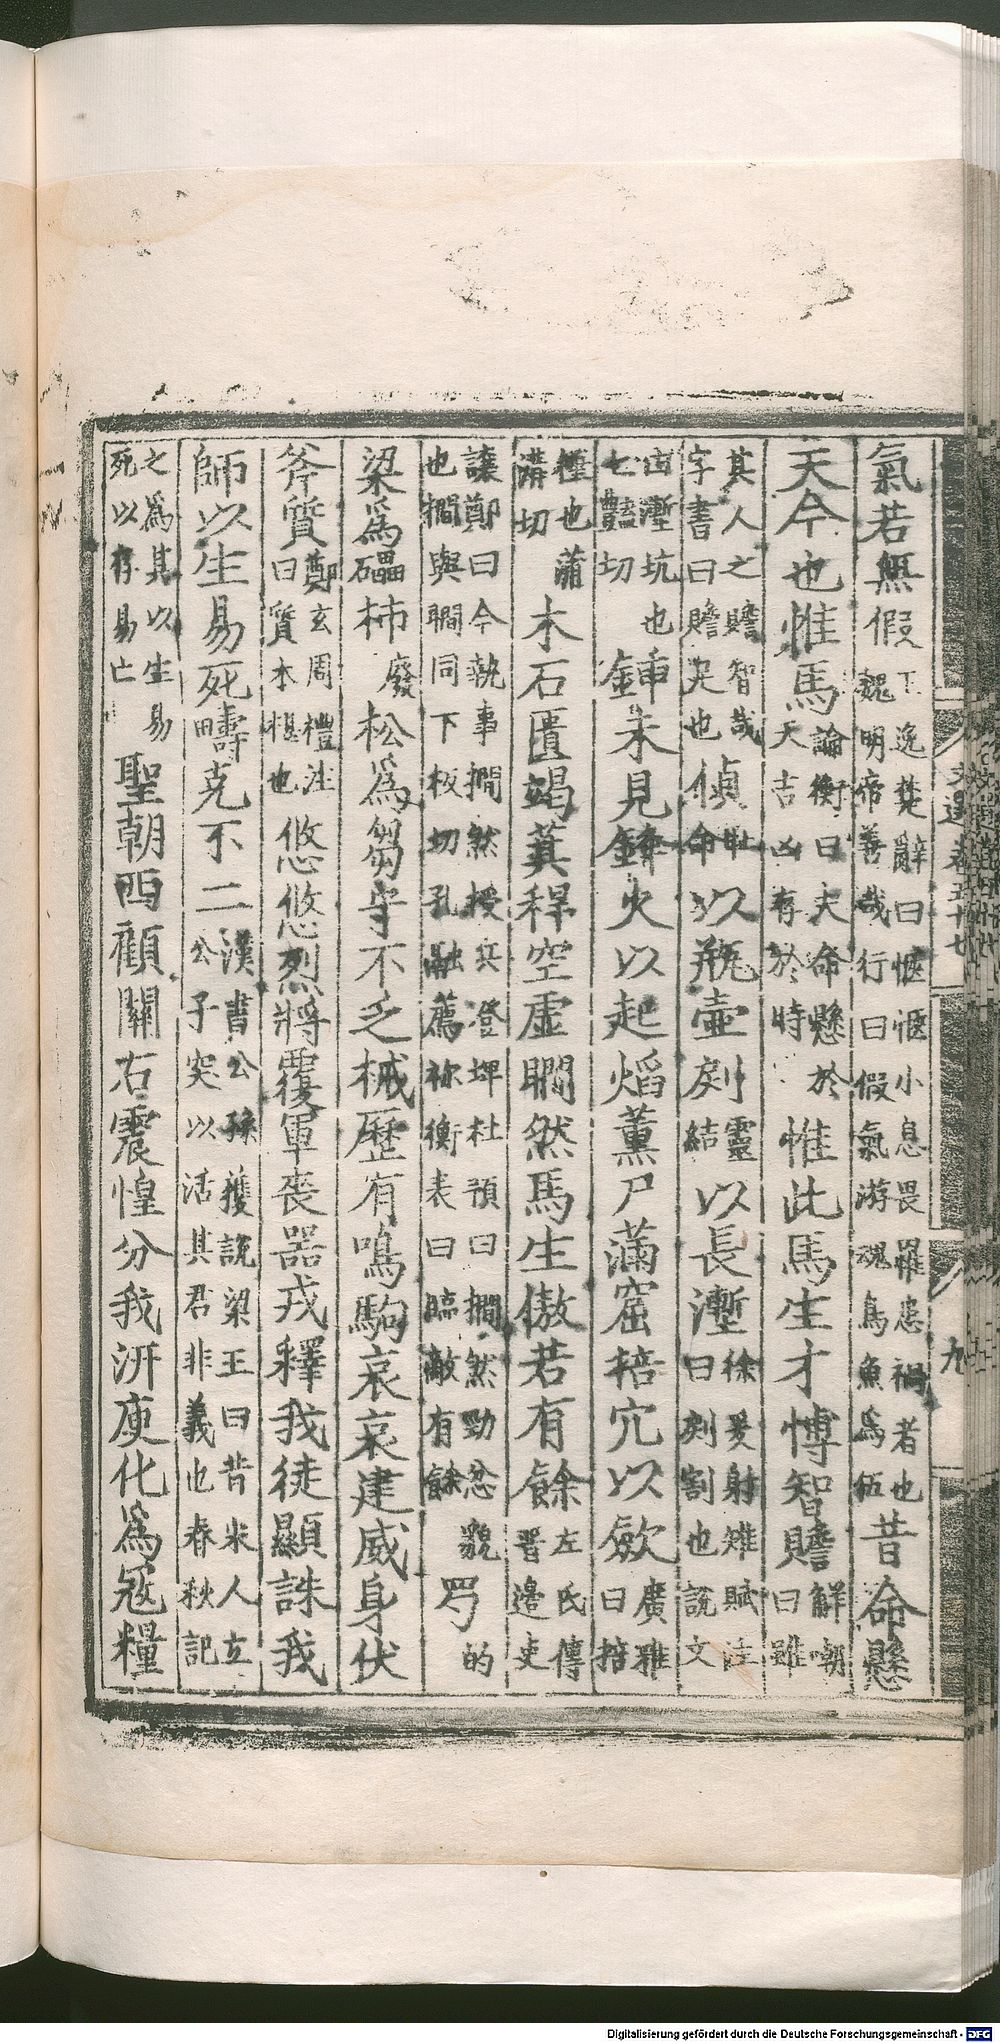 氣若無假王逸楚辭曰惬惬小息畏罹患禍者也魏明帝善哉行曰假氣游魂鳥魚為伍昔命懸
天今也惟馬論衡曰夫命懸於天吉凶存於時惟此馬生才博智贍解嘲曰雖
其人之贍智哉字書曰贍足也偵恥命以瓶壺劽靈結以長塹徐爰射雉賦注曰劽割也說文
曰塹坑也七豔切鍤未見鋒火以起焰薰尸滿窟掊穴以斂廣雅曰掊
棰也蒲溝切木石匱竭萁稈空虛瞯然馬生傲若有餘左氏傳晉邊吏
讓鄭曰今執事撊然授兵登埤杜預曰撊然勁忿貌也撊與瞯同下板切孔融薦禰衡表曰臨敵有餘罞的
梁為礧柿廢松為芻守不乏械歷有鳴駒哀哀建威身伏
斧質鄭玄周禮注曰質木椹也悠悠烈將覆軍喪器戎釋我徒顯誅我
師以生易死疇克不二漢書公孫玃說梁王曰昔宋人立公子突以活其君非義也春秋記
之為其以生易死以存易亡聖朝西顧關右震惶分我汧庾化為寇糧
文選卷五十七
九
Digitalisierung gefördert durch die Deutsche Forschungsgemeinschaft - DFG